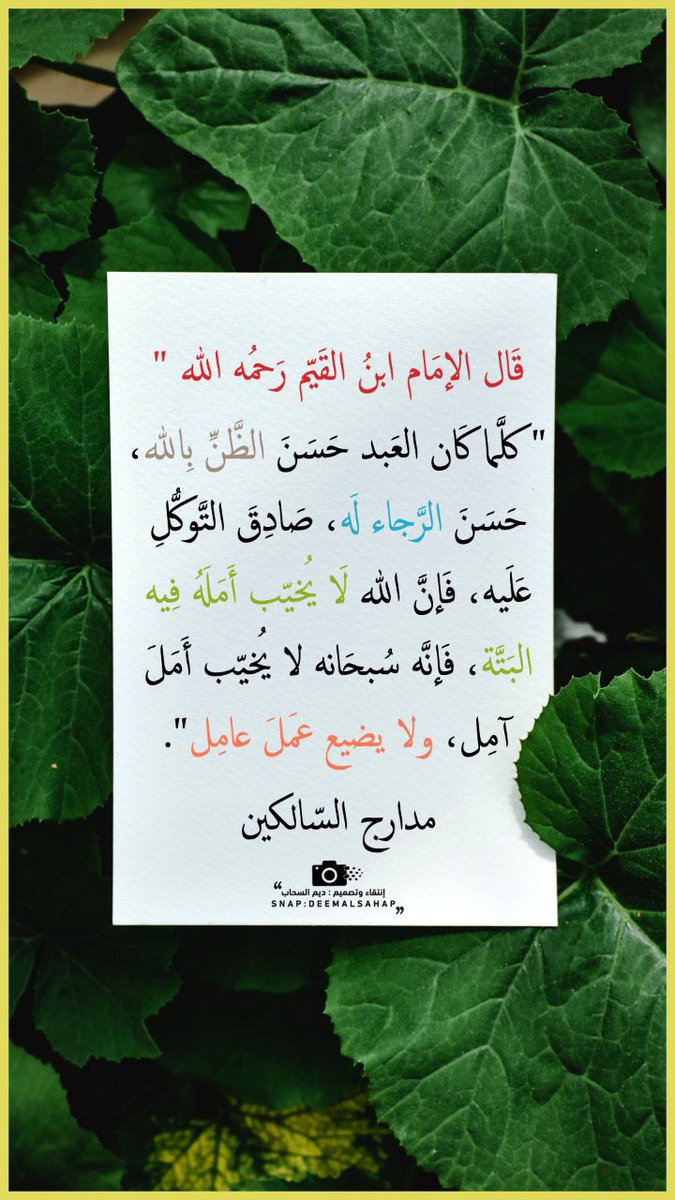 قَال الإمَام ابنُ القَيّم رَحمُه الله "
"كلَّما كَان العَبد حَسَنَ الظَّنِّ بِالله،
حَسَنَ الرَّجاء لَه، صَادِقَ التَّوكُّلِ
عَلَيه، فَإنَّ الله لَا يُخيّب أَمَلَهُ فِيه
البَتَّة، فَإنَّه سُبحَانه لا يُخيّب أَمَلَ
آمِل، ولا يضيع عمَلَ عامِل".
مدارج السّالكين
إنتقاء وتصميم : ديم السحاب
SNAP:DEEMALSAHAP